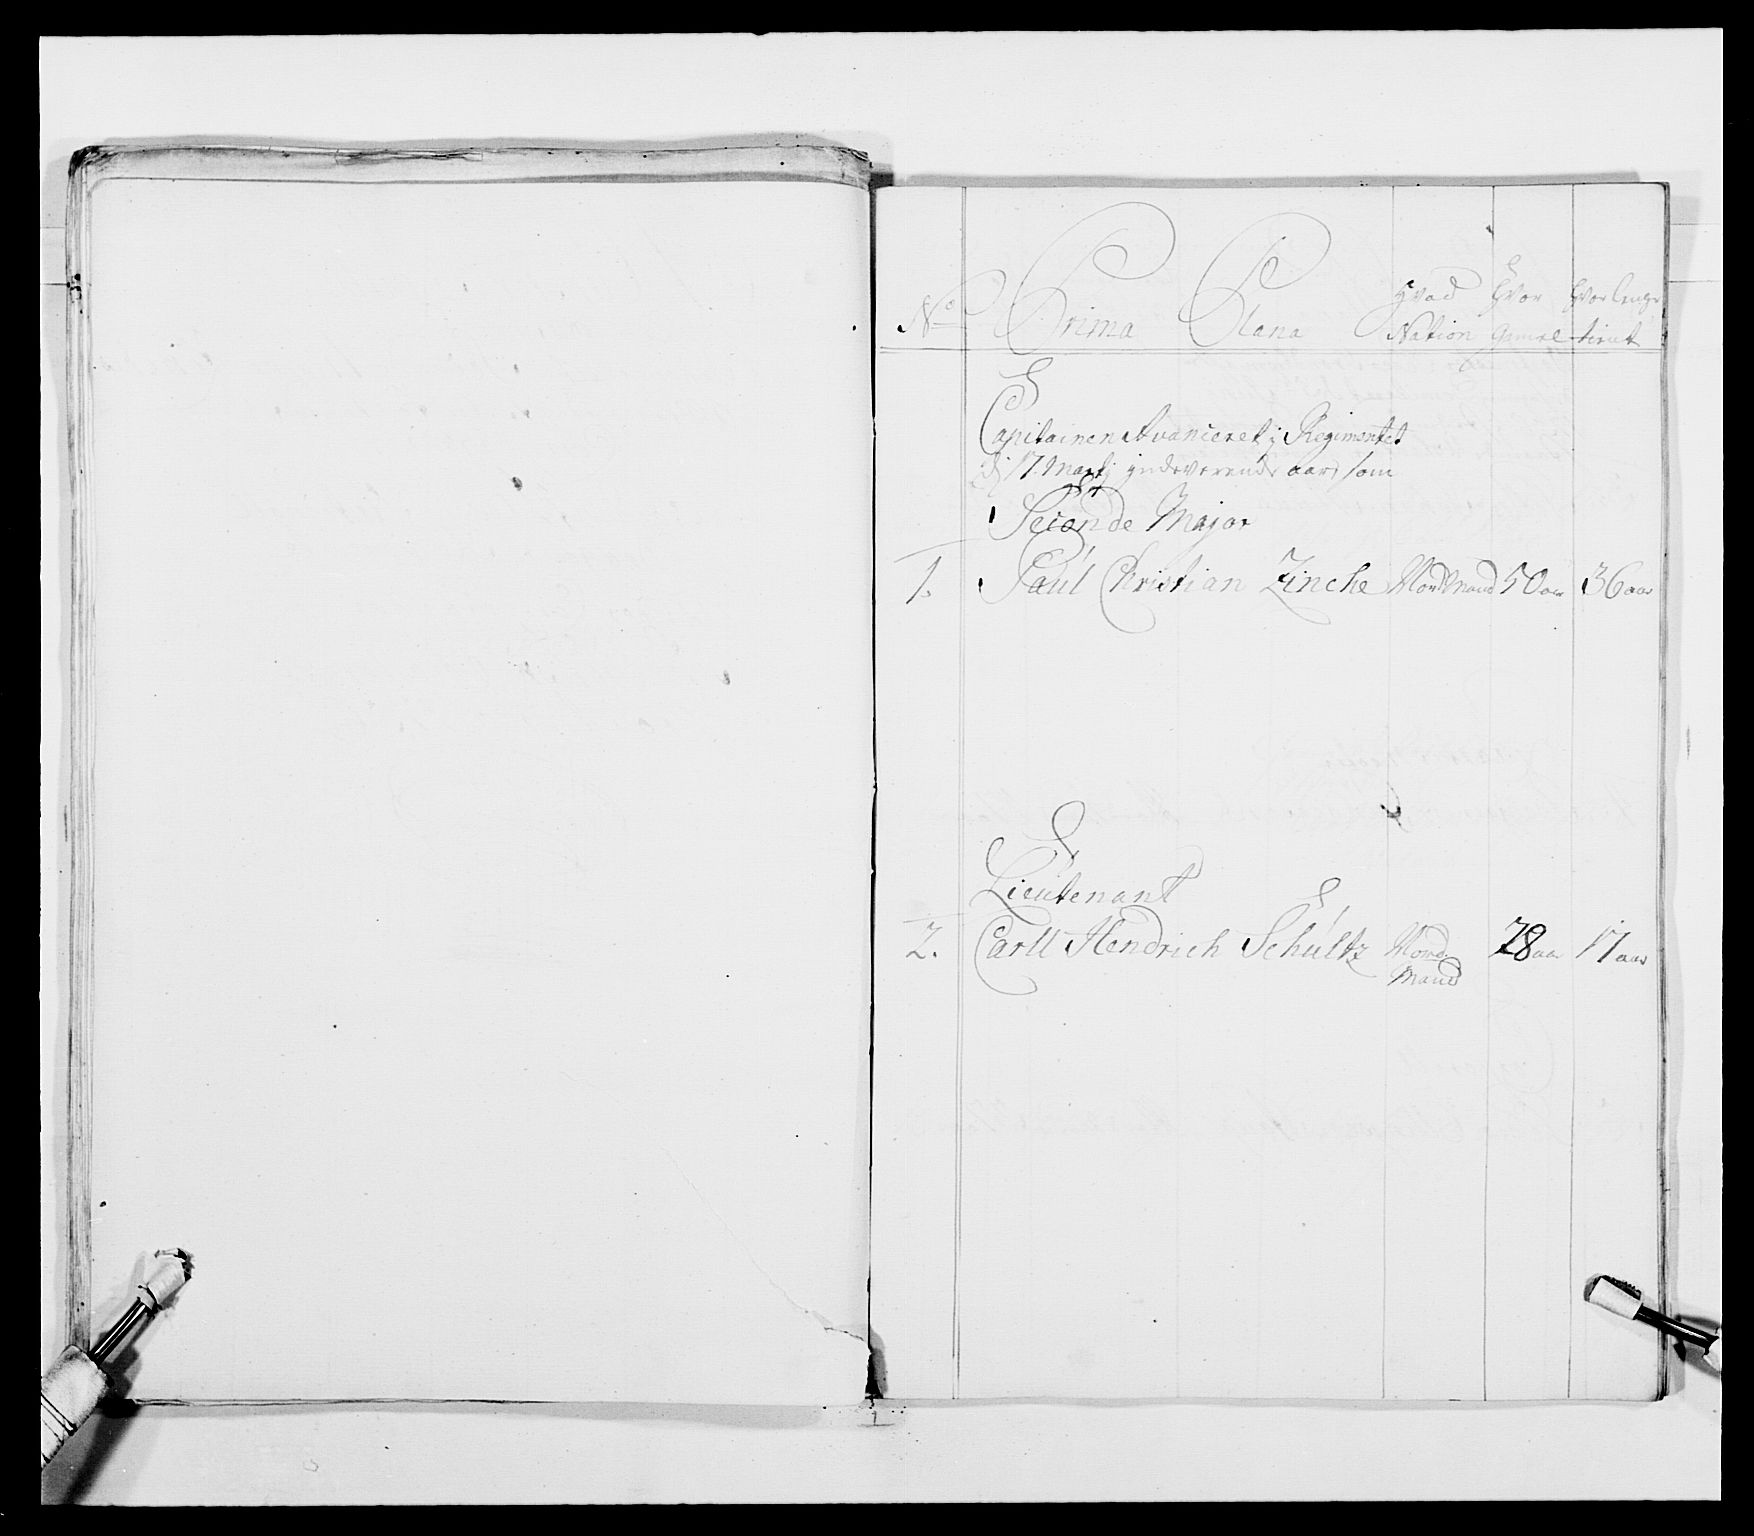 No Prima Plana Hvad Nation Hvor Gamel Hvor lenge tient
Capitainen Avanceret i Regimentet
d 17 Martj indeverende aar, som
Seconde Major
1. Paul Christian Zinche Nordmand 50 aar 36 aar
Lieutenant
2. Carll Hendrich Schültz Nord 28 aar 17 aar
Mand